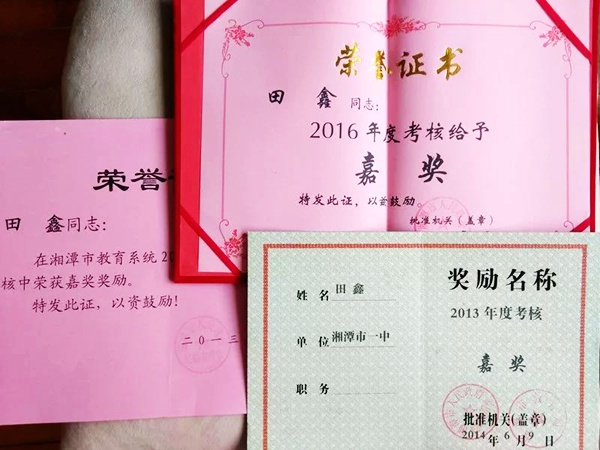 荣誉证书
田 鑫 同志:
2016年度考核给予
嘉 奖
特发此证,以资鼓励
批准机关(盖章)
荣誉
田 鑫同志:
在湘潭市教育系统20
核中荣获嘉奖奖励。
特发此证,以资鼓励!
二〇一三
姓名 田鑫
单位 湘潭市一中
职务
奖励名称
2013年度考核
嘉 奖
批准机关(盖章)
2014年6月9日